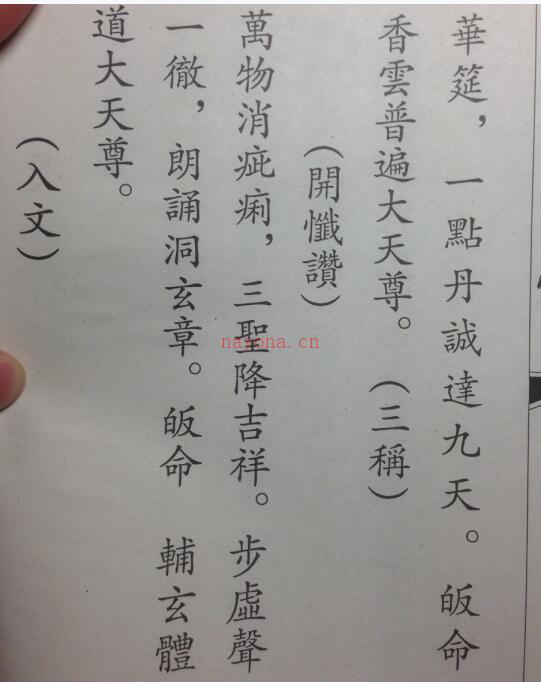 華筵，一點丹誠達九天。皈命
香雲普遍大天尊。（三稱）
（開懺讚）
萬物消疵痢，三聖降吉祥。步虛聲
一徹，朗誦洞玄章。皈命　輔玄體
道大天尊。
（入文）
nayona.cn